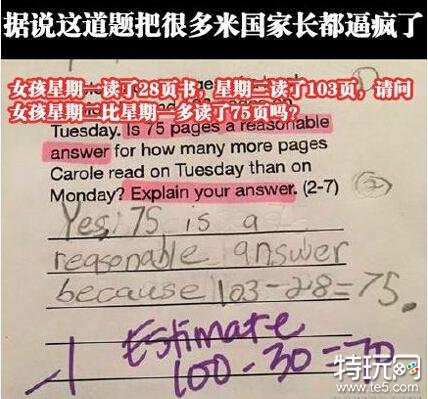 据说这道题把很多米国家长都逼疯了
女孩星期一读了28页书，星期二读了103页，请问
女孩星期二比星期一多读了75页吗？
Tuesday. Is 75 pages a reasonable
answer for how many more pages
Carole read on Tuesday than on
Monday? Explain your answer. (2-7)
2
Yes, 75 is a
reasonable answer
because 103-28=75.
Estimate
100-30=70
特玩网
www.te5.com